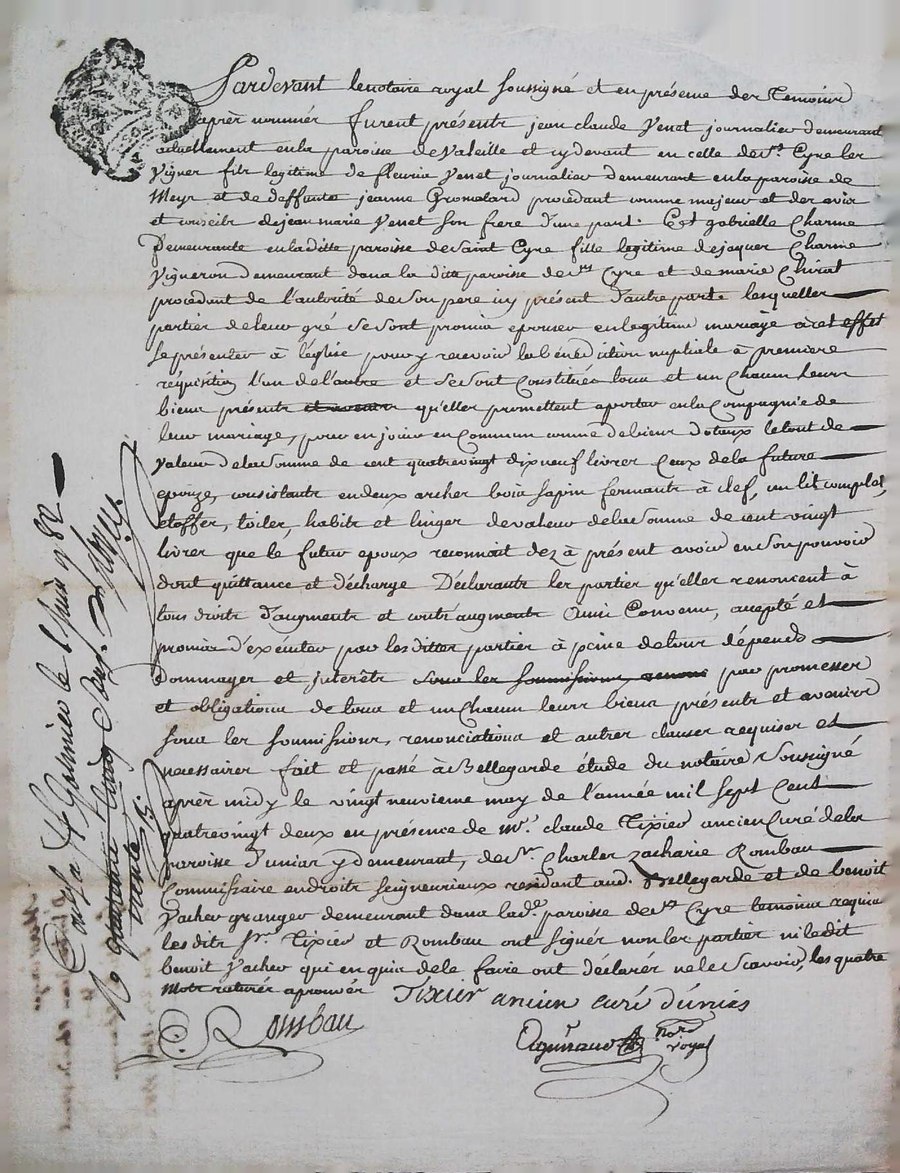 Pardevant le notaire royal soussigné et en présence des temoins
après nommés furent présents jean claude Venet journalier demeurant
actuellement en la paroisse de valeille et cydevant en celle de st Cyre les
vignes fils legitime de fleurie Venet journalier demeurant en la paroisse de
Meys et de deffunte jeanne procédant comme majeur et des avis
et conseils de jean marie Venet son frere d'une part. Et gabrielle Charme
Demeurante en laditte paroisse de saint Cyre fille legitime de jaques Charme
vigneron demeurant dans la ditte paroisse de st Cyre et de marie Chirat
procédant de l'autorité de son pere icy présent d'autre part. lesquelles
parties de leur gré se sont promis epouser en legitime mariage à cet effet
se présenter à l'église pour y recevoir la bénédiction nuptiale à premiere
réquisition l'un de l'autre et se sont constitués tous et un chacun leurs
biens présents et avenir qu'elles promettent aporter en la compagnie de
leur mariage, pour en jouir en commun comme de biens dotaux le tout de
valeur de la somme de cent quatrevingt dix neuf livres Ceux de la future
epouze, consistants en deux arches bois sapin fermants à clef, un lit complet,
étoffes, toiles, habits et linges de valeur de la somme de cent vingt
livres que le futur epoux reconnait dez à présent avoir en son pouvoir
dont quittance et décharge Déclarants les parties qu'elles renoncent à
tous droits d'augments et contr'augments Ainsi Convenu, accepté et
promis d'exécuter par les dittes parties à peine de tous dépends
dommages et interêts sous les soumissions par promesses
et obligations de tous et un chacun leurs biens présents et avenirs
sous les soumissions, renonciations et autres clauses requises et
necessaires fait et passé à Bellegarde étude du notaire soussigné
après midy le vingt neuvieme may de l'année mil sept Cent
quatrevingt deux en présence de Mr. claude Tixier ancien Curé de la
paroisse d'unias y demeurant, de Sr. Charles zacharie Rombau
Commissaire en droits seigneuriaux résidant aud. Bellegarde et de benoit
Vacher granger demeurant dans lade. paroisse de st Cyre temoins requis
lesdits Sr. Tixier et Rombau ont signés non les parties ni ledit
benoit Vacher qui enquis de le faire ont déclarés ne le scavoir, les quatre
mots raturés aprouvés Tixier ancien curé d'unias
Rombau
nore royal
Con.lé à St Galmier le 1 juin 1782